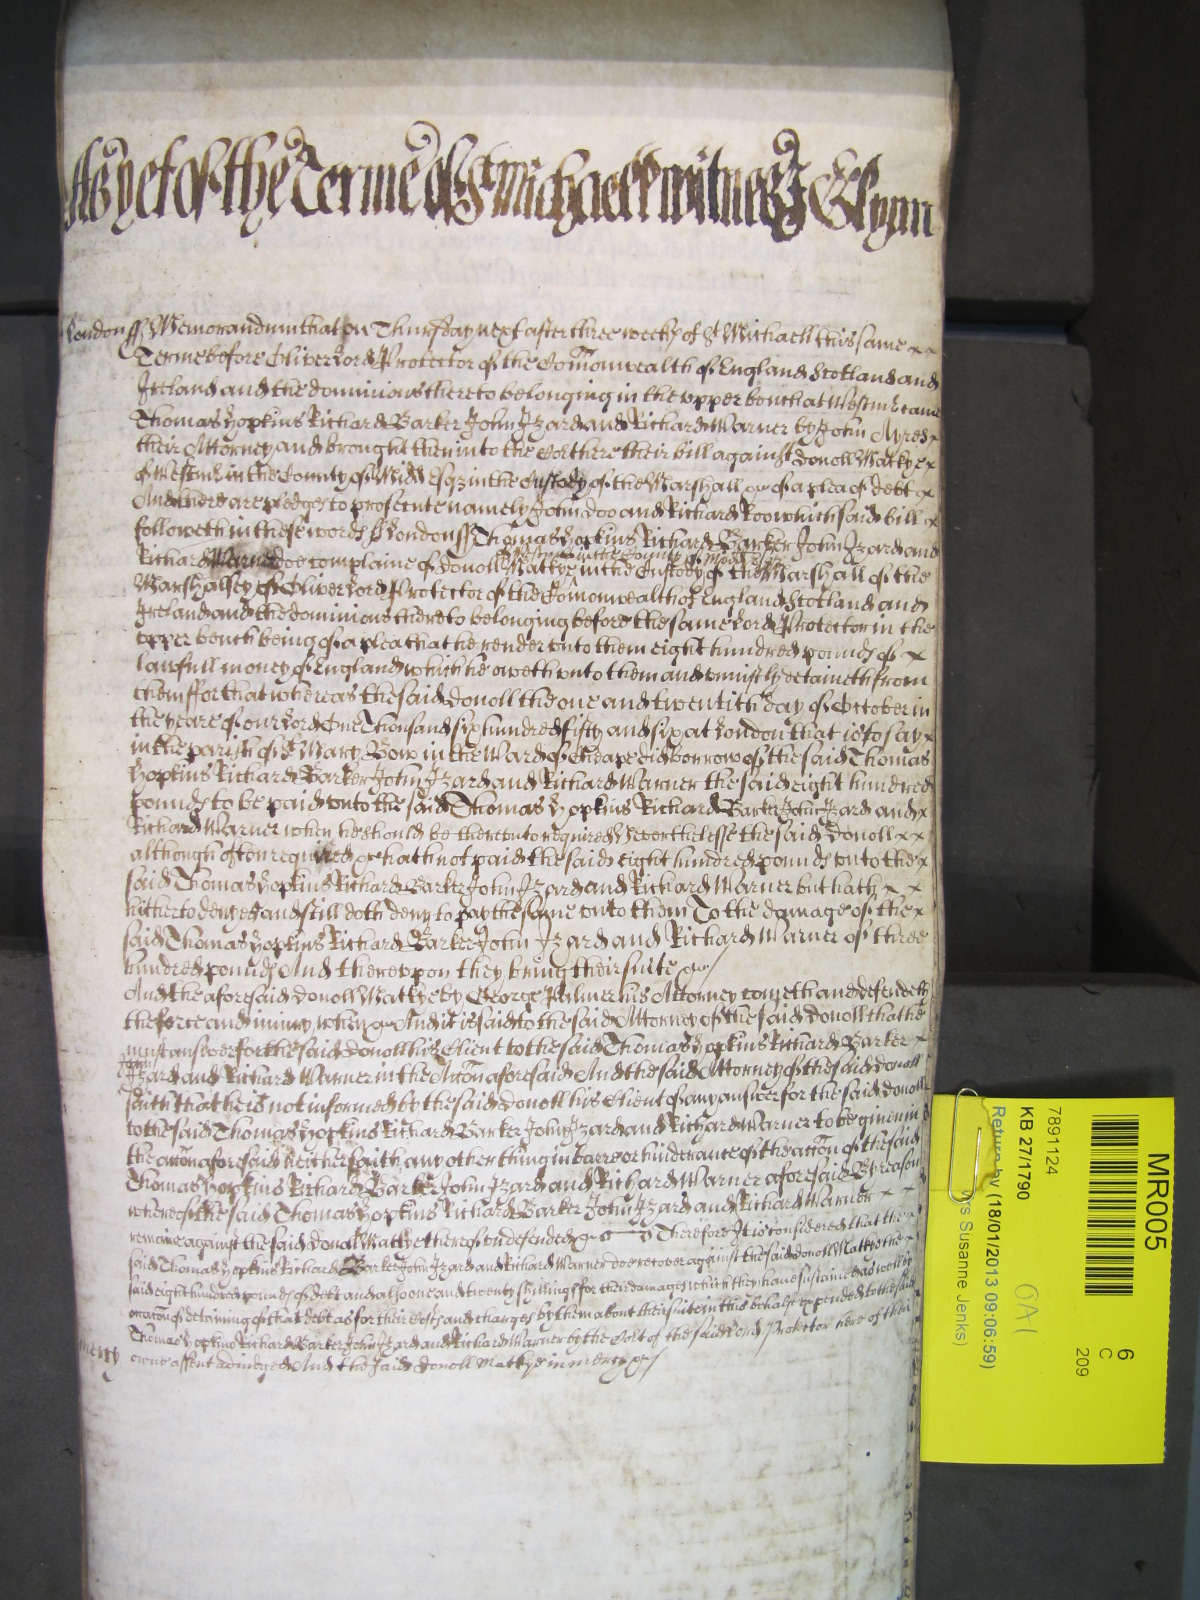 As yet of the Terme of St Michaell witnes J Glynn
London ss Memorandum that on Thursday next after three weeks of St Michaell this same
Terme before Oliver Lord Protector of the Comonwealth of England Scotland and
Ireland and the dominions thereto belonging in the upper bench at Westmr came
Thomas Hopkins Richard Barker John Izard and Richard Warner by John Ayres
their Attorney and brought then into the Cort there their bill against Donoll Mackye
of Westmr in the County of Midd Esqr in the Custody of the Marshall &c of a plea of debt
And there are pledges to prosecute namely John Doo and Richard Roo which said bill
followeth in these words ss London ss Thomas Hopkins Richard Barker John Izard and
of Westmr in the County of Midd Esqr
Richard Warner doe complaine of Donoll Mackye in the Custody of the Marshall of the
Marshalsey of Oliver Lord Protector of the Comonwealth of England Scotland and
Ireland and the dominions thereto belonging before the same Lord Protector in the
upper bench being of a plea that he render unto them eight hundred pounds of
lawfull money of England which he oweth unto them and uniustly detaineth from
them ffor that whereas the said Donoll the one and twentith day of October in
the yeare of our Lord One Thousand six hundred fifty and six at London that is to say
in the parish of St Mary Bow in the Ward of Cheape did borrow of the said Thomas
Hopkins Richard Barker John Izard and Richard Warner the said eight hundred
pounds to be paid unto the said Thomas Hopkins Richard Barker John Izard and
Richard Warner when he should be thereunto required Neverthelesse the said Donoll
although often required &c hath not paid the said eight hundred pounds unto the
said Thomas Hopkins Richard Barker John Izard and Richard Warner but hath
hitherto denyed and still doth deny to pay the same unto them To the damage of the
said Thomas Hopkins Richard Barker John Izard and Richard Warner of three
hundred pounds And thereupon they bring their suite &c
And the aforesaid Donoll Mackye by George Palmer his Attorney cometh and defendeth
the force and iniury when &c And it is said to the said Attorney of the said Donoll that he
must answere for the said Donoll his Client to the said Thomas Hopkins Richard Barker
John
Izard and Richard Warner in the Accon aforesaid And the said Attorney of the said Donoll
saith that he is not informed by the said Donoll his Client of any answer for the said Donoll
to the said Thomas Hopkins Richard Barker John Izard and Richard Warner to be given in
the accon aforesaid neither saith any other thing in barre or hindrance of the accon of the said
Thomas Hopkins Richard Barker John Izard and Richard Warner aforesaid By reason
whereof the said Thomas Hopkins Richard Barker John Izard and Richard Warner
remaine against the said Donoll Mackye thereof undefended &c Therefore It is considered that the
said Thomas Hopkins Richard Barker John Izard and Richard Warner doe recover against the said Donoll Mackye the
said eight hundred pounds of debt and also one and twenty shillings for their damages which they have sustained as well by
occacon of detaining of that debt as for their Costs and charges by them about their suite in this behalf expended to the said
Thomas Hopkins Richard Barker John Izard and Richard Warner by the Cort of the said Lord Protector here of their
mercy
owne assent adiudged And the said Donoll Mackye in mercy &c
MR005
7891124
KB 27/1790
Return by (18/01/2013 09:06:59)
Susanne Jenks)
OA1
6
C
209